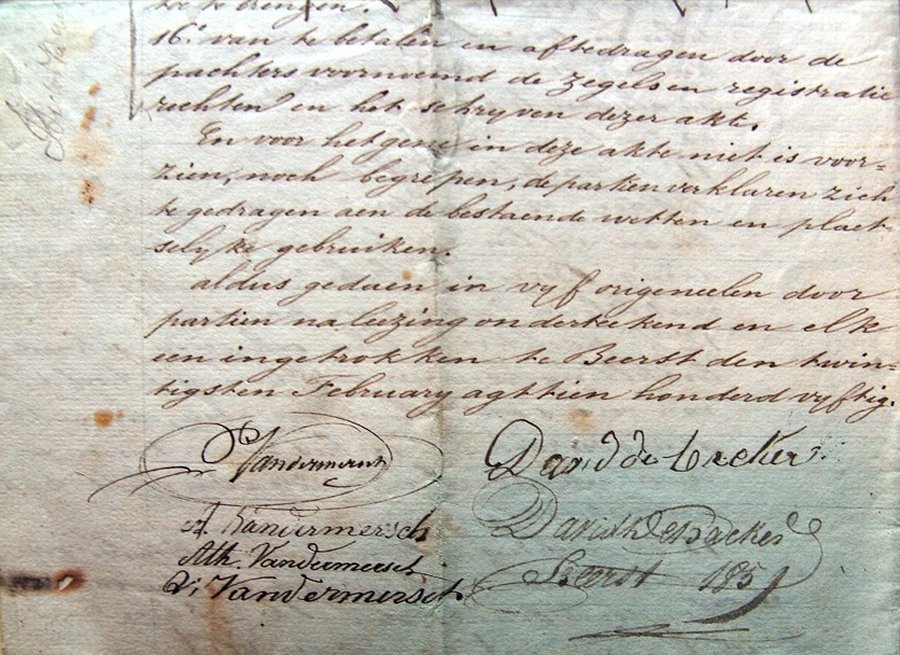 toe te brengen.
16.' van te betalen en aftedragen door de
pachters voornoemd de zegels en registratie
rechten en het schryven dezer akte.
En voor hetgene in deze akte niet is voor-
zien, noch begrepen, de partien verklaren zich
te gedragen aen de bestaende wetten en plaet-
selyke gebruiken.
aldus gedaen in vyf origeneelen door
partien na leizing onderteekend en elk
een ingetrokken te Beerst den twin-
tigsten February agttien honderd vyftig.
Vandermersch
David de
A. Vandermersch
David
Ath. Vandermersch
Beerst 185
Vandermersch